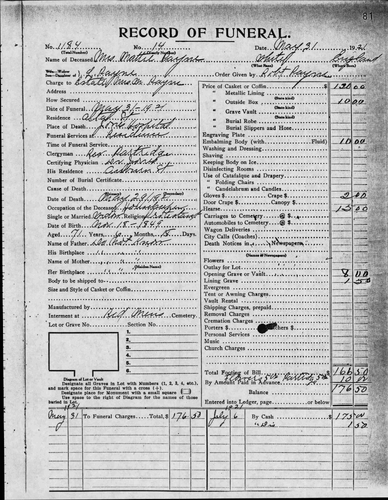 81
RECORD OF FUNERAL.
No. 1184 No. 14 Date May 31 1921
(Total Number) (Yearly Number)
Name of Deceased Mrs. Mattie Payne White England
Payne
Charge to Estate Mrs. M. Payne Order Given by Robt Payne
Address
How Secured
Date of Funeral May 31-1921
Residence
Place of Death Hospital
Funeral Services at Residence
Time of Funeral Service
Clergyman Rev. Partridge
Certifying Physician Dr. Jones
His Residence Auburn St
Number of Burial Certificate
Cause of Death
Date of Death May 28
Occupation of the Deceased Housekeeper
Single or Married Widow Religion Protestant
Date of Birth Nov 18-1849
Aged 71 Years 6 Months Days
Name of Father
His Birthplace
Name of Mother
(Maiden Name)
Her Birthplace
Body to be shipped to
Size and Style of Casket or Coffin
Manufactured by
Interment at Red Mens Cemetery
Lot or Grave No. Section No.
No. 1
No. 2
No. 3
No. 4
No. 5
No. 6
No. 7
No. 8
Diagram of Lot or Vault
Designate all Graves in Lot with Numbers (1, 2, 3, 4, etc.),
and mark space for this Funeral with a cross (+).
Designate place for Monument with a small square
Use space to right of Diagram for names of those
buried in Lot.
Price of Casket or Coffin 130 00
" Metallic Lining
" Outside Box 10 00
" Grave Vault
" Burial Robe
" Burial Slippers and Hose
Engraving Plate
Embalming Body (with Fluid) 10 00
Washing and Dressing
Shaving
Keeping Body on Ice
Disinfecting Rooms
Use of Catafalque and Drapery
" Folding Chairs
" Candelabrum and Candles
Gloves $ Crape $ 2 00
Door Crape $ Canopy $
Hearse 15 00
Carriages to Cemetery @ $
Automobiles to Cemetery @ $
Wagon Deliveries
City Calls (Coaches)
Death Notices in Newspapers
(Name of Newspapers)
Flowers
Outlay for Lot
Opening Grave or Vault 8 00
Lining Grave 1 50
Evergreen
Tent or Awning Charges
Vault Rental
Shipping Charges, prepaid
Removal Charges
Cremation Charges
Personal Services
Music
Church Charges
Total Footing of Bill 166 50
By Amount Paid in Advance 10 00
Balance 176 50
Entered into Ledger, page or below.
1921
May 31 To Funeral Charges, Total $ 176 50
1921
July 6 By Cash $ 175 00
" Dis 1 50